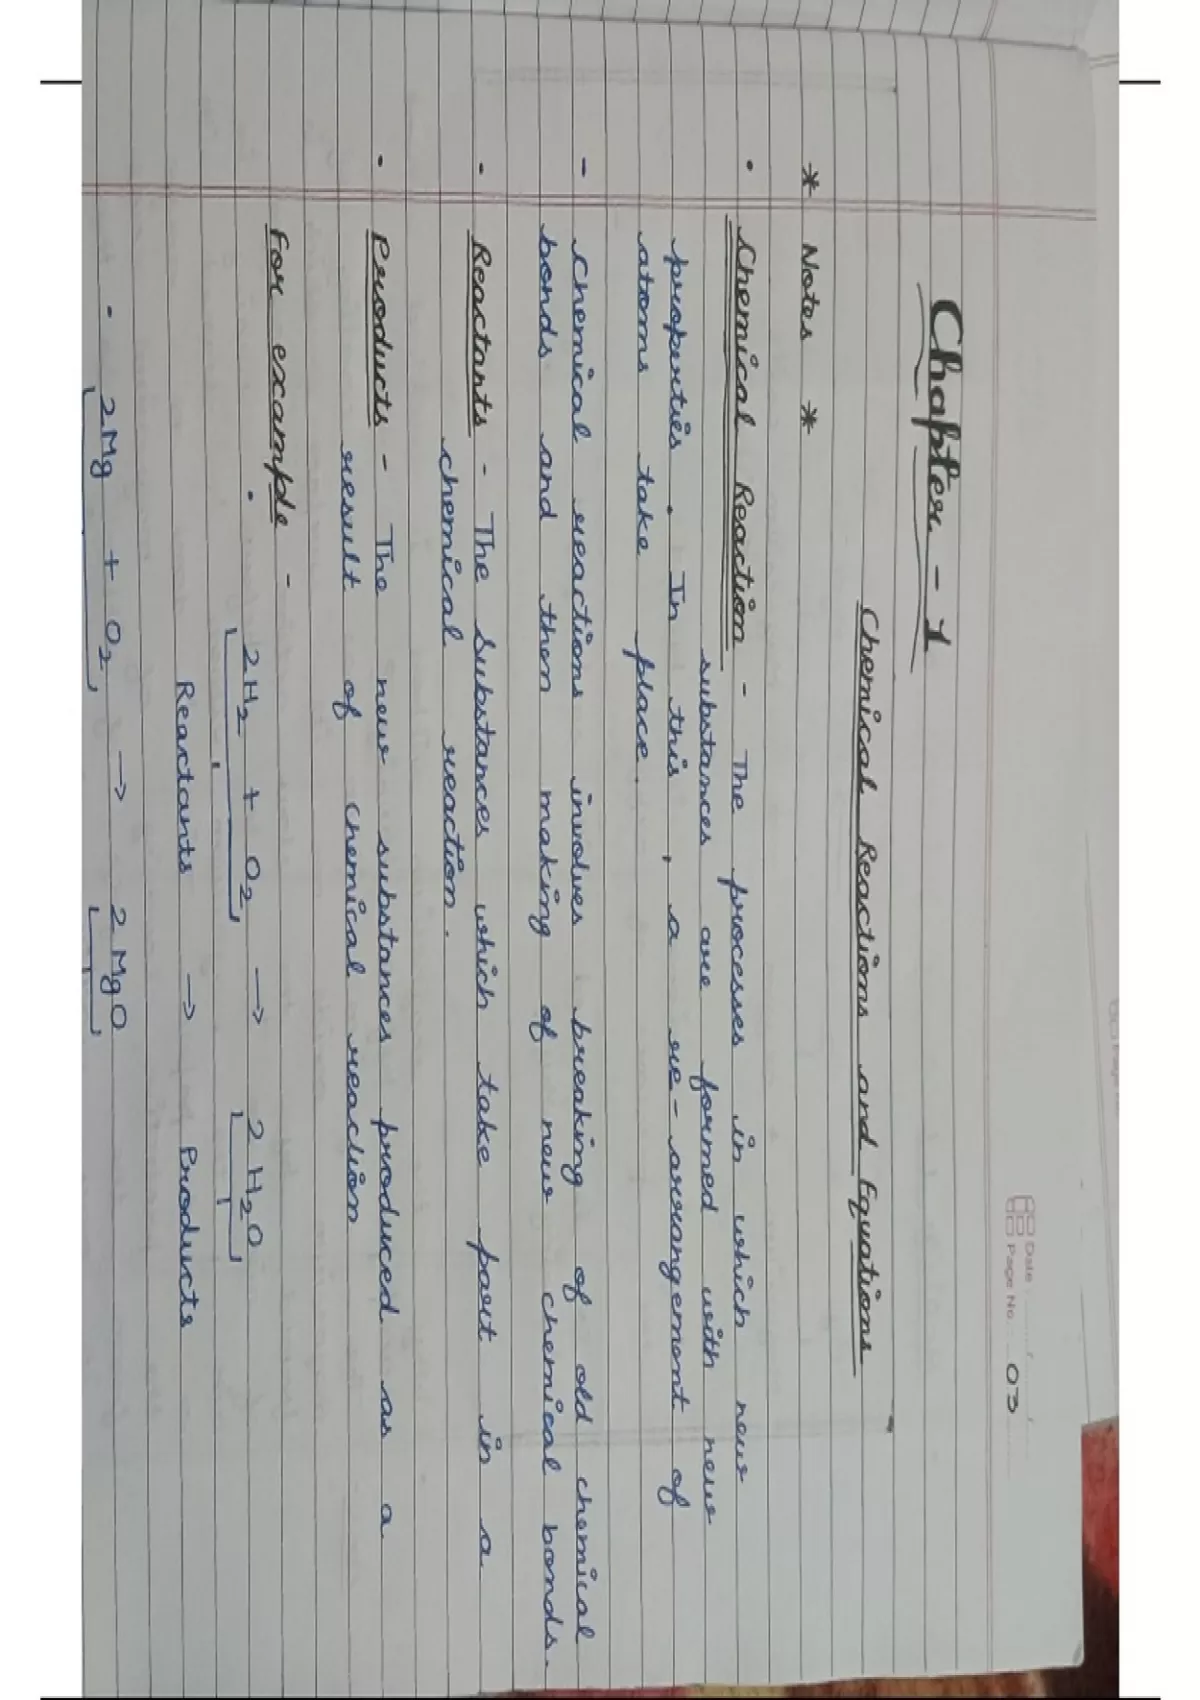 Date :
Page No : 03
Chapter - 1
Chemical Reactions and Equations
* Notes *
• Chemical Reaction - The processes in which new
substances are formed with new
properties . In this , a re-arrangement of
atoms take place.
- Chemical reactions involves breaking of old chemical
bonds and then making of new chemical bonds.
• Reactants - The Substances which take part in a
chemical reaction.
• Products - The new substances produced as a
result of chemical reaction
For example -
2H₂ + O₂ → 2H₂O
Reactants → Products
2Mg + O₂ → 2MgO